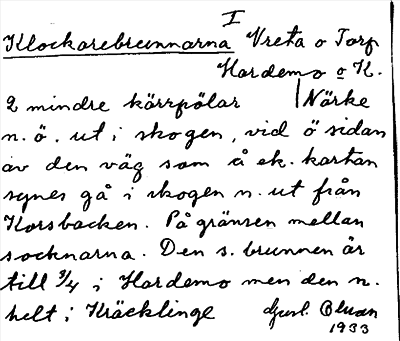 I
Klockarebrunnarna Vreta o Torp
Hardemo o K.
2 mindre kärrpölar | Närke
n. ö. ut i skogen, vid ö sidan
av den väg som å ek. kartan
synes gå i skogen n. ut från
Korsbacken. På gränsen mellan
socknarna. Den s. brunnen är
till 3/4 i Hardemo men den n.
helt i Kräcklinge
1933